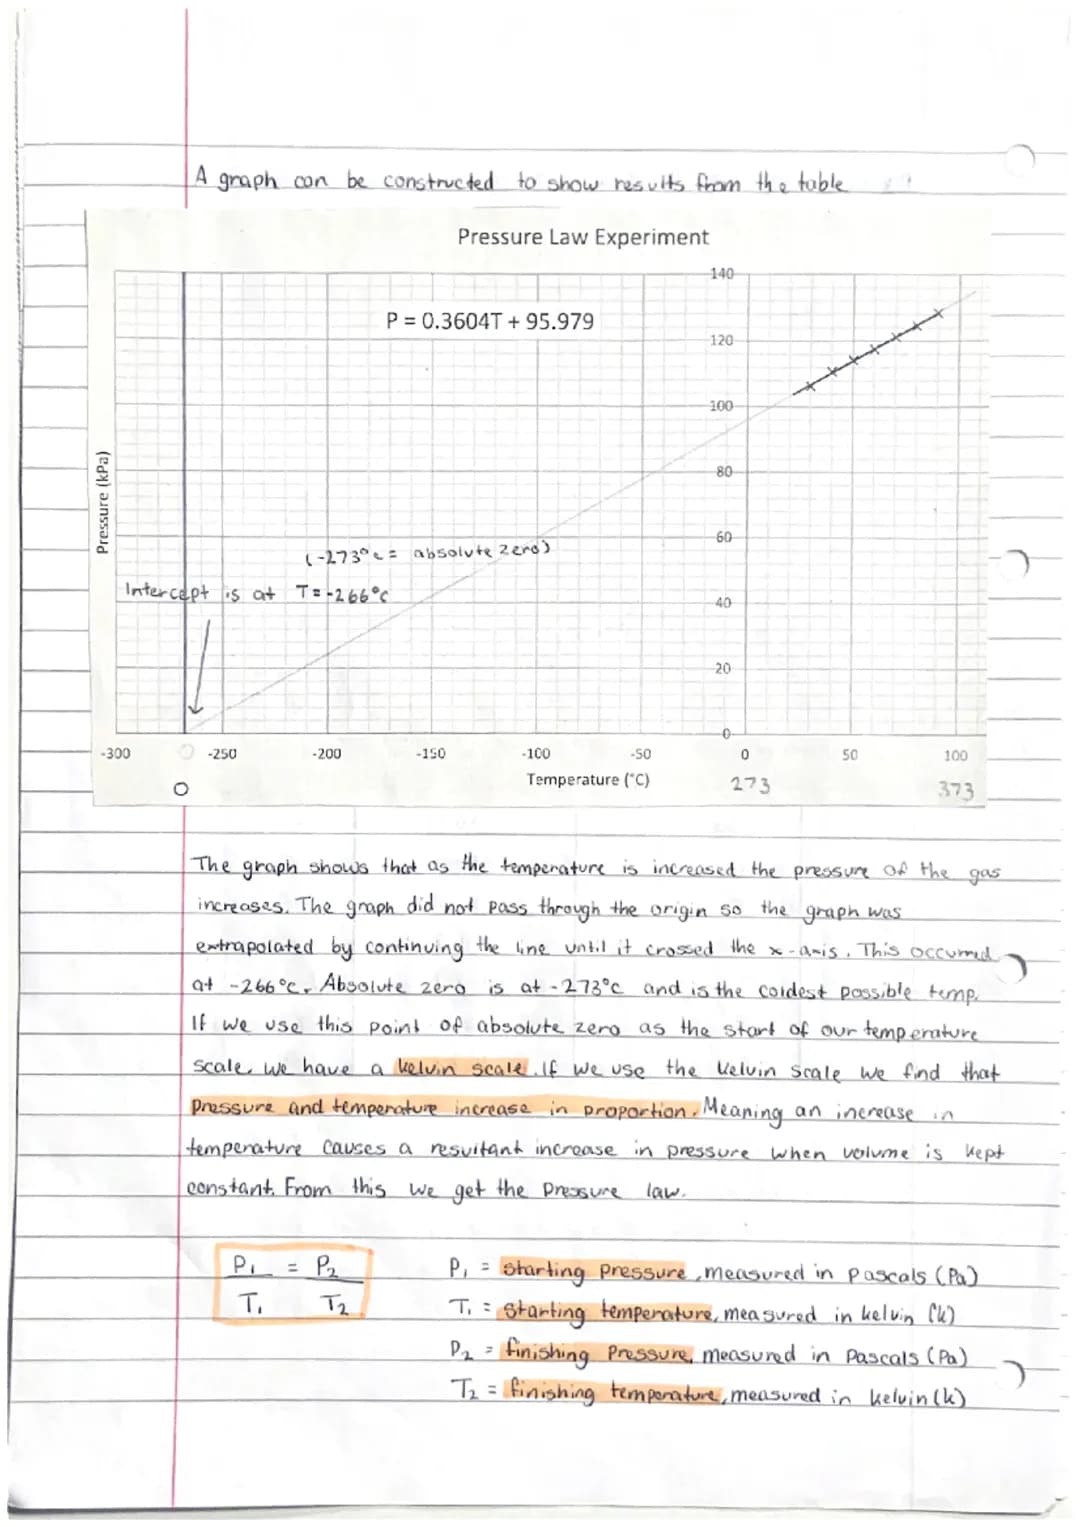 A graph can be constructed to show results from the table
Pressure Law Experiment
P = 0.3604T + 95.979
140
120
100
80
60
40
20
0
Pressure (kPa)
(-273°c = absolute zero)
Intercept is at T = -266°c
-300 -250 -200 -150 -100 -50 0 50 100
Temperature (°C)
0 273 373
The graph shows that as the temperature is increased the pressure of the gas
increases. The graph did not pass through the origin so the graph was
extrapolated by continuing the line until it crossed the x-axis. This occurred
at -266°c. Absolute zero is at -273°c and is the coldest possible temp.
If we use this point of absolute zero as the start of our temperature
scale, we have a kelvin scale. If we use the kelvin scale we find that
pressure and temperature increase in proportion. Meaning an increase in
temperature causes a resultant increase in pressure when volume is kept
constant. From this we get the pressure law.
P₁ = P₂
T₁ T₂
P₁ = starting pressure, measured in pascals (Pa)
T₁ = starting temperature, measured in kelvin (k)
P₂ = finishing pressure, measured in pascals (Pa)
T₂ = finishing temperature, measured in kelvin (k)